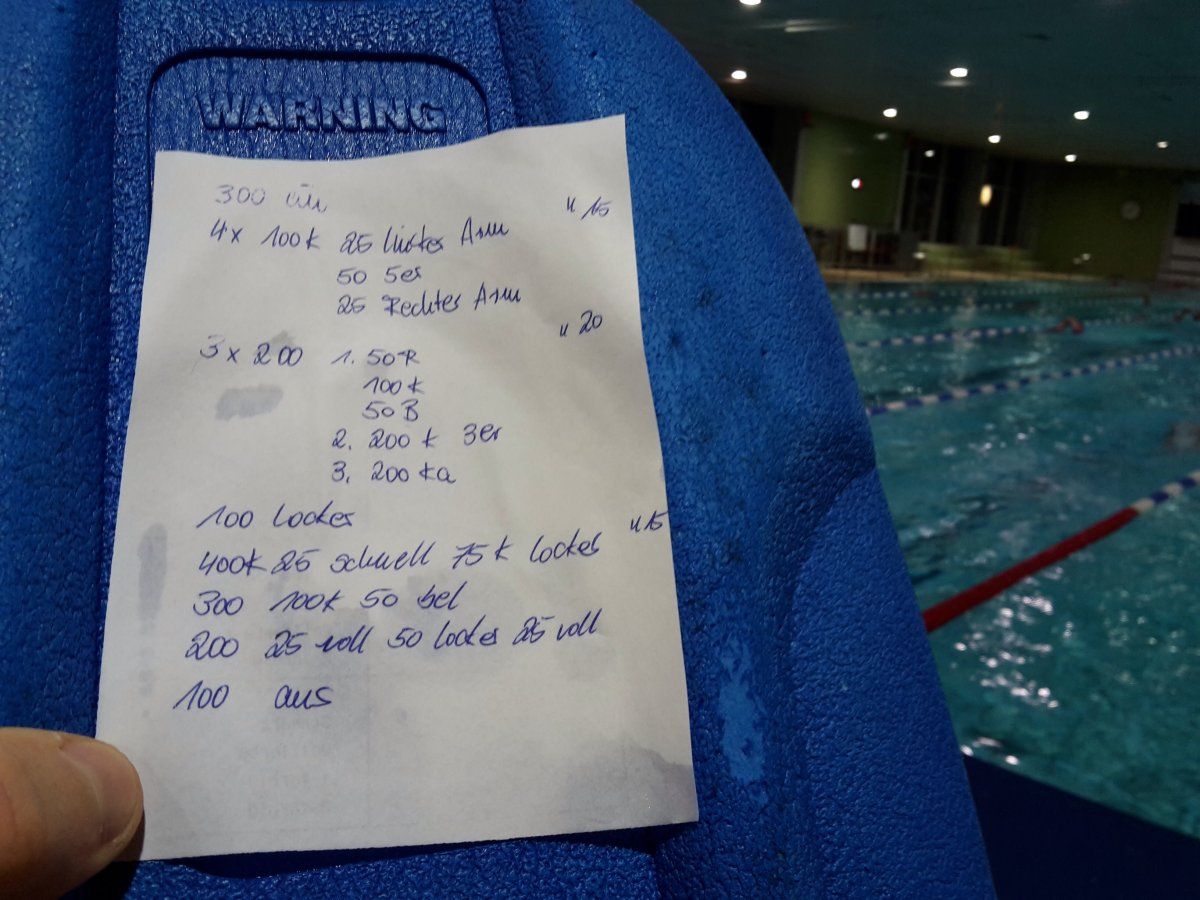 WARNING
300 ein
4x 100k 25 linker Arm "15
50 5er
25 Rechter Arm
3 x 200 1. 50R "20
100k
50B
2. 200k 3er
3. 200ka
100 locker
400k 25 schnell 75k locker "15
300 100k 50 bel
200 25 voll 50 locker 25 voll
100 aus